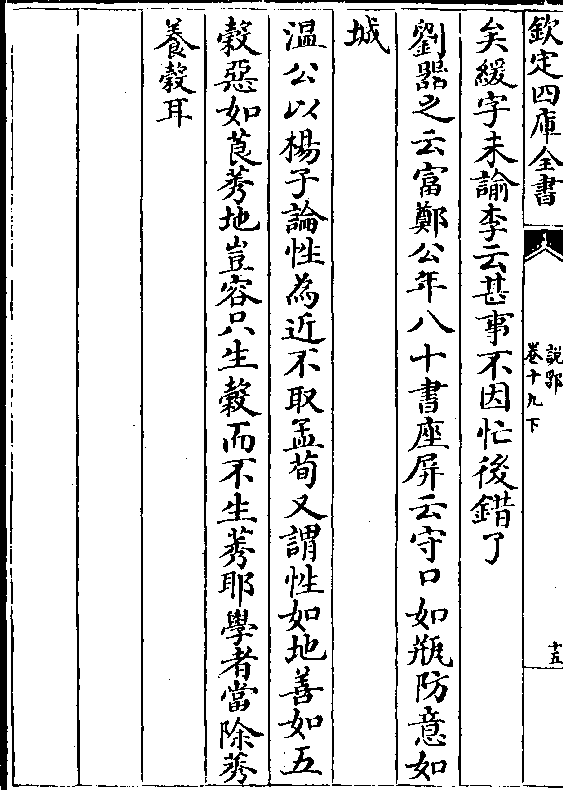 欽定四庫全書
說郛
卷十九下
十五
矣緩字未諭李云甚事不因忙後錯了
劉器之云富鄭公年八十書座屏云守口如瓶防意如
城
温公以楊子論性為近不取孟荀又謂性如地善如五
榖惡如莨莠地豈容只生榖而不生莠耶學者當除莠
養榖耳